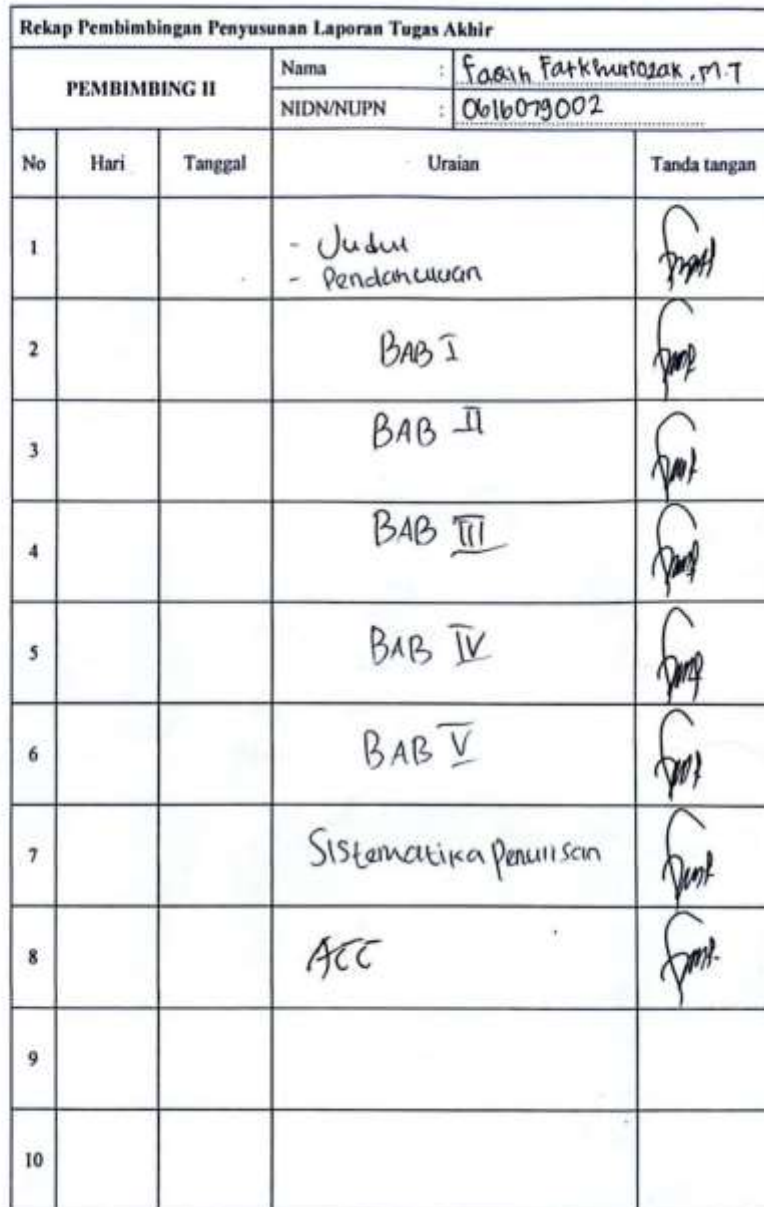 Rekap Pembimbingan Penyusunan Laporan Tugas Akhir
PEMBIMBING II
Nama : Faqih Fatkhurrozak, M.T
NIDN/NUPN : 0616079002
No Hari Tanggal Uraian Tanda tangan
1 - Judul
- Pendahuluan
2 BAB I
3 BAB II
4 BAB III
5 BAB IV
6 BAB V
7 Sistematika Penulisan
8 ACC
9
10